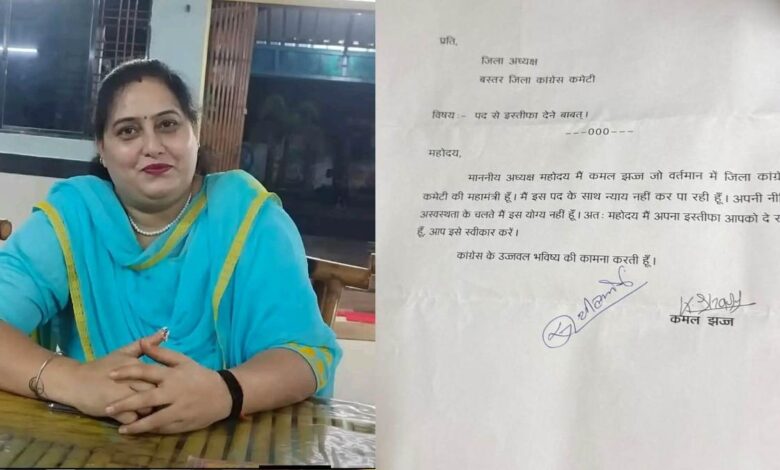 प्रति,
जिला अध्यक्ष
बस्तर जिला कांग्रेस कमेटी
विषय :- पद से इस्तीफा देने बाबत्।
---000---
महोदय,
माननीय अध्यक्ष महोदय मैं कमल झज्ज जो वर्तमान में जिला कांग्रे
कमेटी की महामंत्री हूँ। मैं इस पद के साथ न्याय नहीं कर पा रही हूँ। अपनी नी
अस्वस्थता के चलते मैं इस योग्य नहीं हूँ। अतः महोदय मैं अपना इस्तीफा आपको दे र
हूँ, आप इसे स्वीकार करें।
कांग्रेस के उज्जवल भविष्य की कामना करती हूँ।
कमल झज्ज